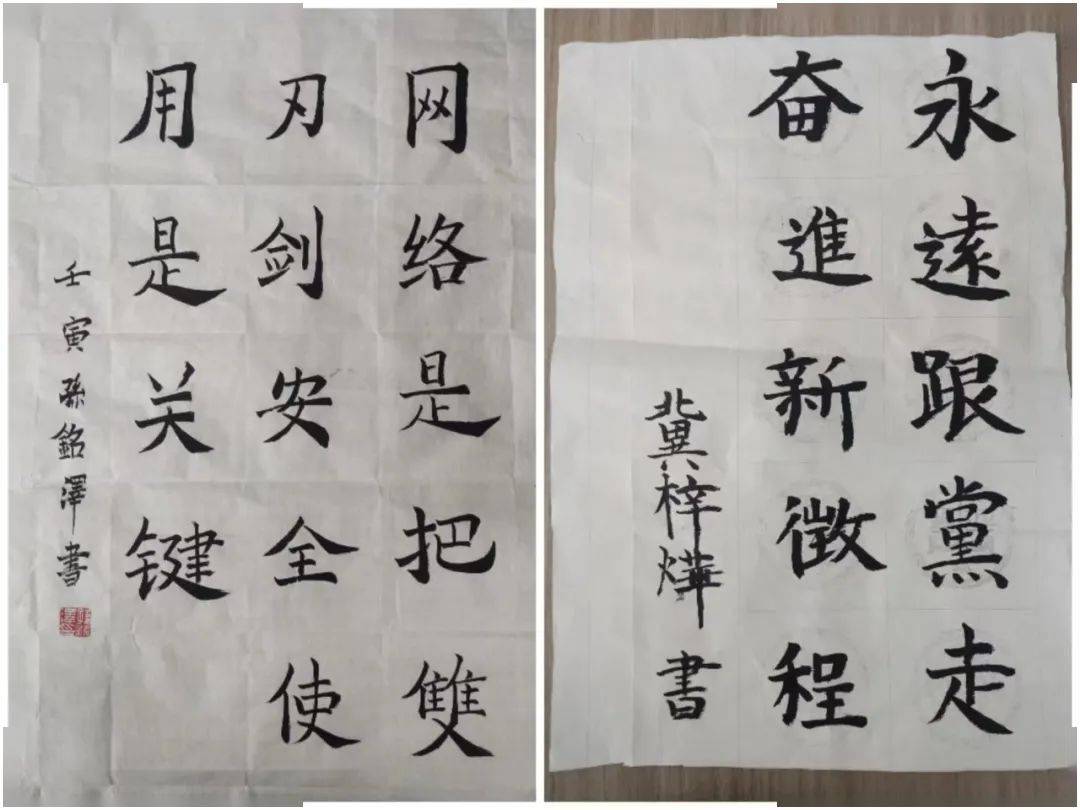 网络是把雙
刃剑安全使
用是关键
壬寅孫銘澤書
永遠跟黨走
奋進新徵程
冀梓燁書